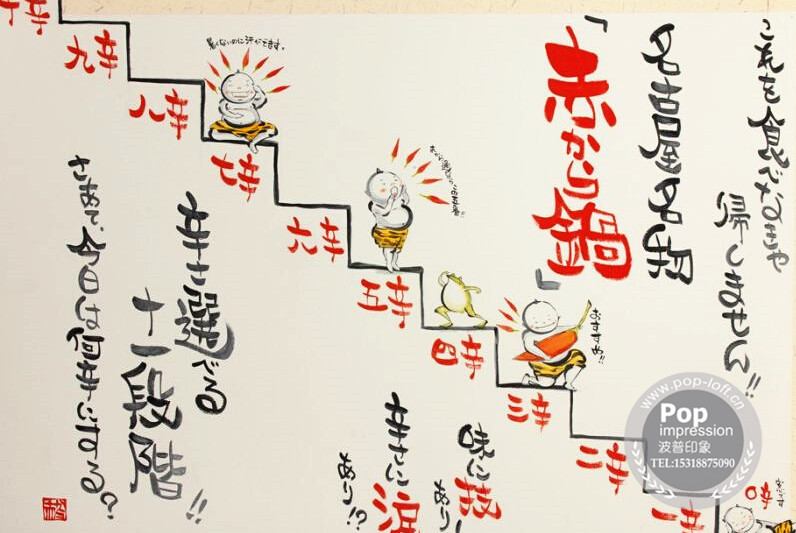 これを食べなきゃ
帰しません!!
名古屋名物
「赤から鍋」
おすすめ!!
味に技
あり!
辛さに涙
あり!?
辛さ選べる
十一段階!!
さあて、今日は何辛にする?
暑くないのに汗がでます。
十辛
九辛
八辛
七辛
六辛
五辛
四辛
三辛
二辛
一辛
www.pop-loft.cn
Pop
impression
波普印象
TEL:15318875090